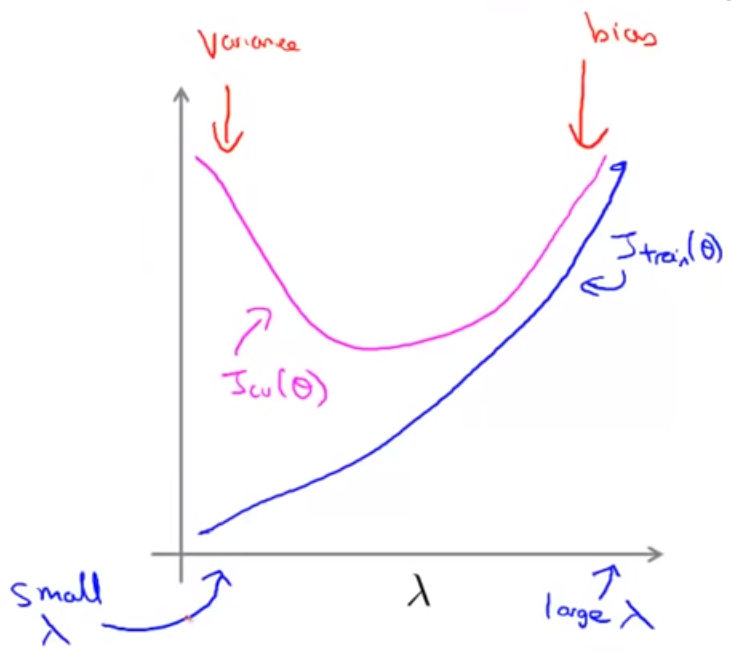 Variance
bias
Jtrain(θ)
Jcv(θ)
small
λ
λ
large λ